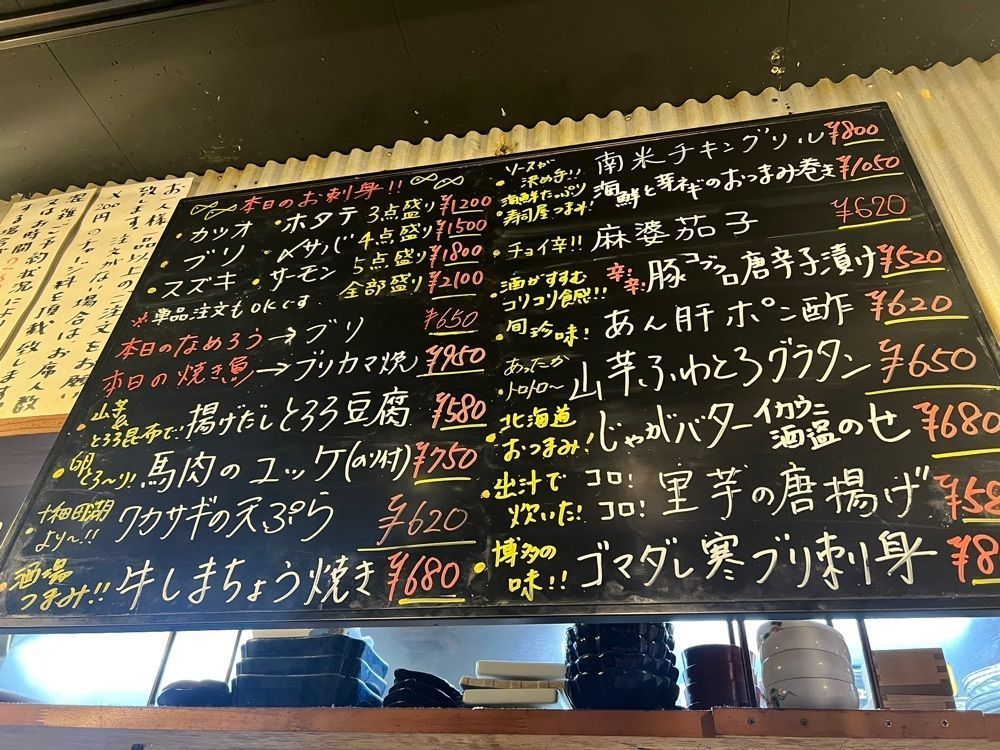 お一人様一品以上のご注文をお願い
致します。ご注文がない場合はお席一人
¥200円のチャージ料を頂戴致します
混雑
又はご予約状況により
する場合
本日のお刺身!!
・カツオ ・ホタテ 3点盛り ¥1200
・ブリ ・〆サバ 4点盛り ¥1500
・スズキ ・サーモン 5点盛り ¥1800
全部盛り ¥2100
※単品注文もOKです
本日のなめろう→ブリ ¥650
本日の焼き魚→ブリカマ焼 ¥950
・山芋&とろろ昆布で! 揚げだしとろろ豆腐 ¥580
・卵とろ〜り! 馬肉のユッケ(のり付) ¥750
・十和田湖より〜!! ワカサギの天ぷら ¥620
・酒場つまみ!! 牛しまちょう焼き ¥680
・ソースが決め手!! 南米チキングリル ¥800
・海鮮たっぷり寿司屋つまみ! 海鮮と芽ネギのおつまみ巻き ¥1050
・チョイ辛!! 麻婆茄子 ¥620
・酒がすすむコリコリ食感!! 辛辛豚コブクロ唐辛子漬け ¥520
・旬珍味! あん肝ポン酢 ¥620
・あったかトロトロ〜 山芋ふわとろグラタン ¥650
・北海道おつまみ! じゃがバターイカウニ酒盗のせ ¥680
・出汁で炊いた! コロ!コロ!里芋の唐揚げ ¥58
・博多の味!! ゴマダレ寒ブリ刺身 ¥8